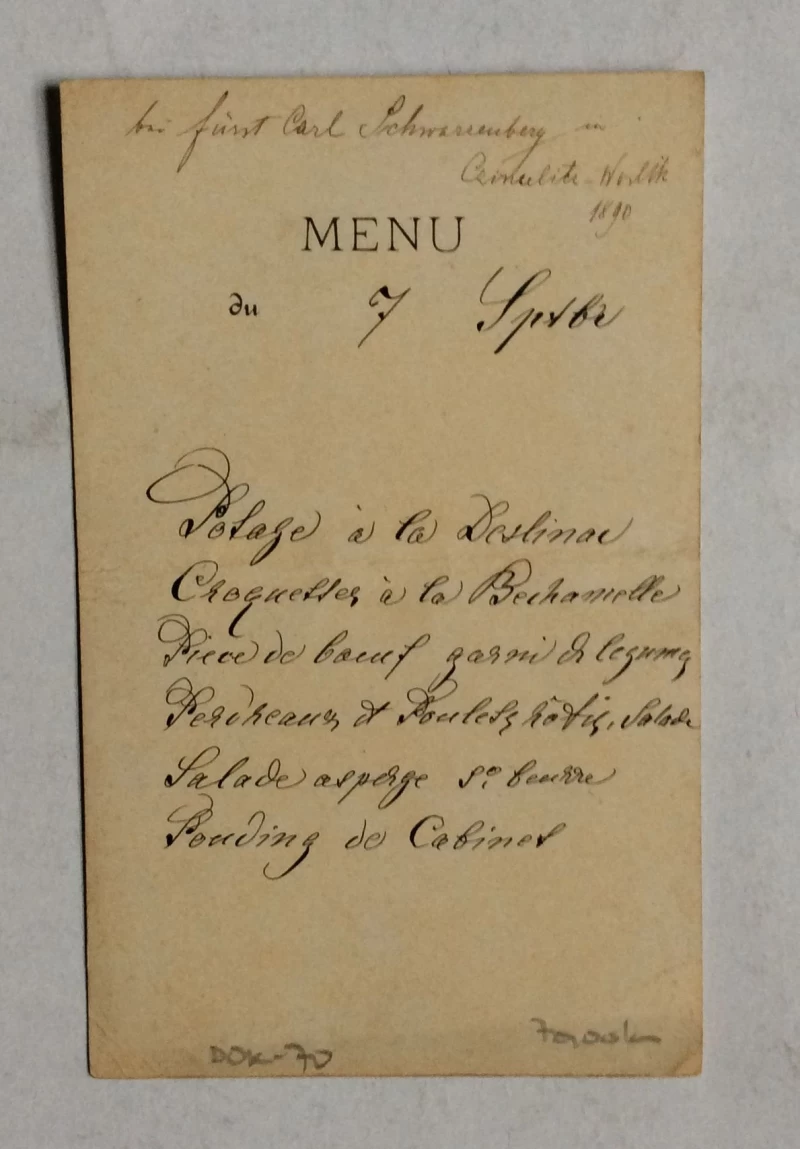 bei Fürst Carl Schwarzenberg in
Czimelitz-Worlik
1890
MENU
du 7 Sptbr
Potage à la Deslinac
Croquettes à la Bechamelle
Piece de boeuf garni de legumes
Perdreaux et Poulets rôtis, Salade
Salade asperge sce beurre
Pouding de Cabinet
DOK-70